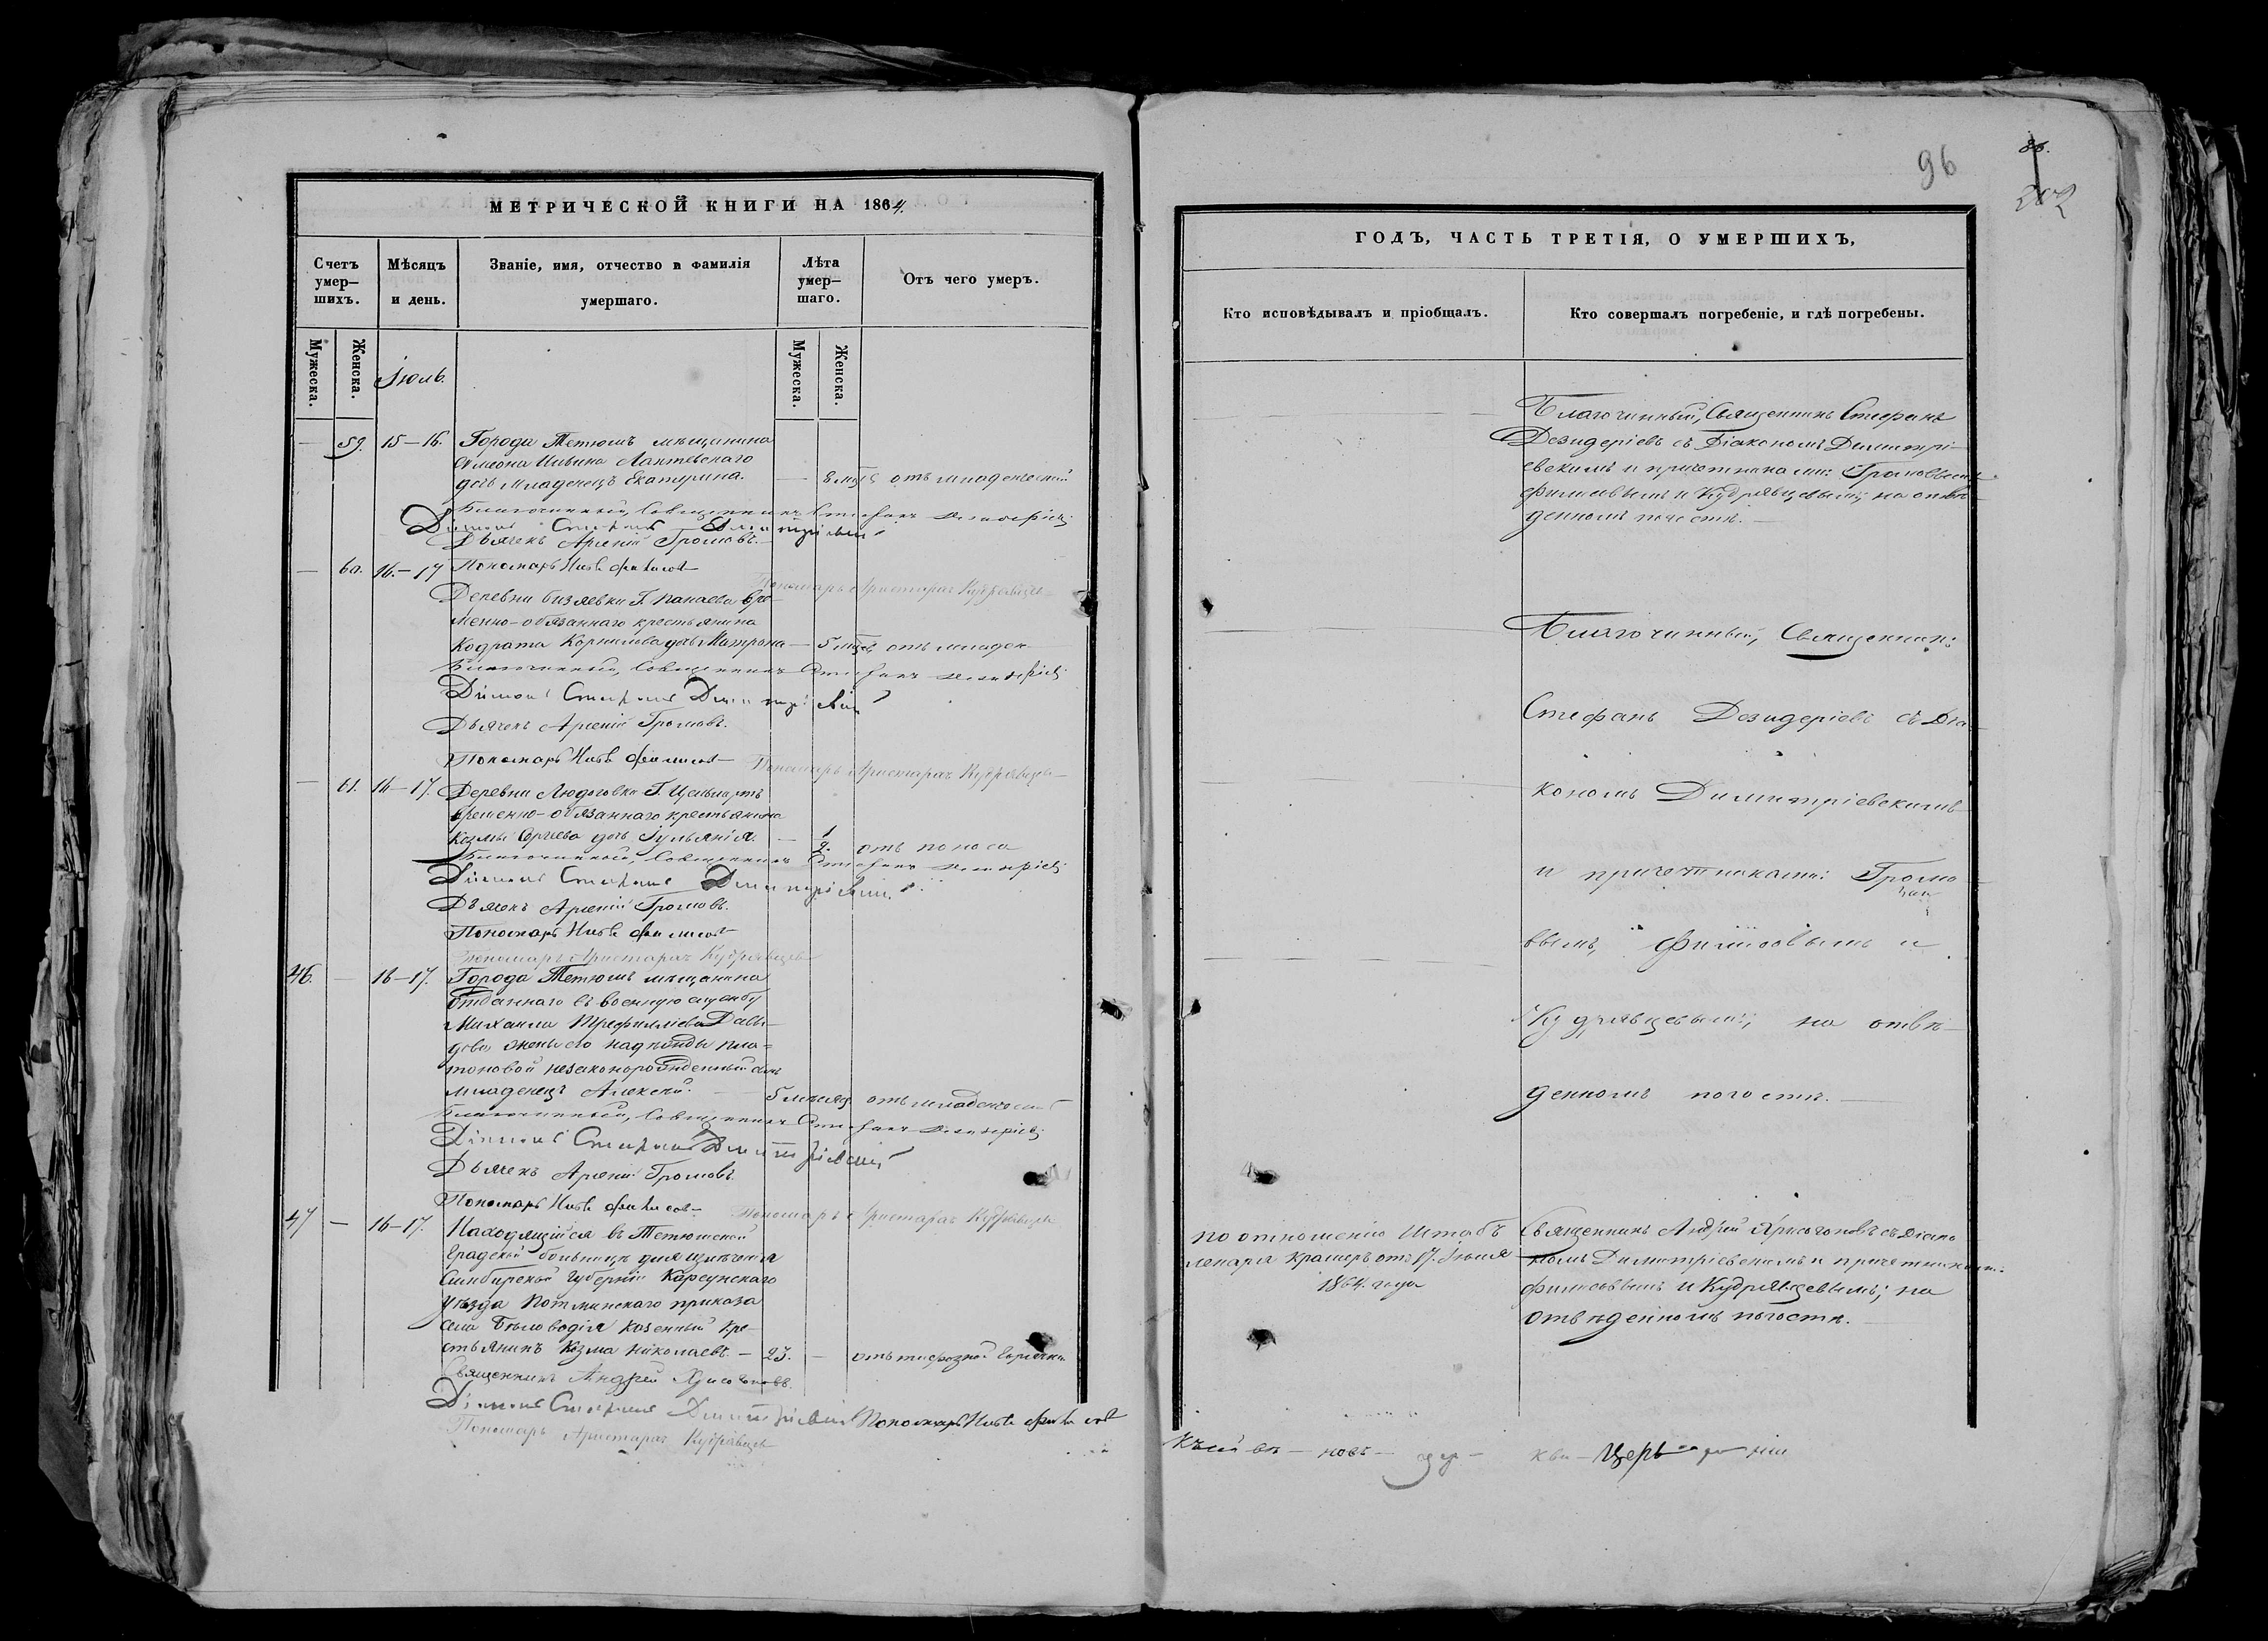 МЕТРИЧЕСКОЙ КНИГИ НА 1864.
Счетъ умер-шихъ.
Мѣсяцъ и день.
Званіе, имя, отчество и фамилія умершаго.
Лѣта умер-шаго.
Отъ чего умеръ.
Мужеска.
Женска.
Іюль.
Мужеска.
Женска.
— 59. 15—16. Города Тетюшъ мѣщанина
Симеона Ильина Лаптевскаго
дочь младенецъ Екатерина. — 8 отъ младенческой
Благочинный, Священникъ Стефанъ Дезидеріевъ
Діаконъ Стефанъ Димитріевскій
Дьячекъ Арсеній Громовъ.
Пономарь Филисовъ
Пономарь Аристархъ Кудрявцевъ
— 60. 16—17 Деревни Бизяевки Г. Панаева вре-
менно-обязаннаго крестьянина
Кодрата Корнилова дочь Матрона — 5 отъ младен
Благочинный, Священникъ Стефанъ Дезидеріевъ
Діаконъ Стефанъ Димитріевскій
Дьячекъ Арсеній Громовъ.
Пономарь Филисовъ
Пономарь Аристархъ Кудрявцевъ
— 61. 16—17. Деревни Людоговки Г.
временно-обязаннаго крестьянина
Козмы дочь Іульянія. — 1/2. отъ поноса
Благочинный, Священникъ Стефанъ Дезидеріевъ
Діаконъ Стефанъ Димитріевскій
Дьячекъ Арсеній Громовъ.
Пономарь Филисовъ
Пономарь Аристархъ Кудрявцевъ
46. — 16—17. Города Тетюшъ мѣщанина
отданнаго въ военную службу
Михаила Трефилліева Давы-
дова жены его Надежды Пла-
тоновой незаконорожденный сынъ
младенецъ Алексей. — 5 мѣсяц отъ младенческой
Благочинный, Священникъ Стефанъ Дезидеріевъ
Діаконъ Стефанъ Димитріевскій
Дьячекъ Арсеній Громовъ
Пономарь Филисовъ
Пономарь Аристархъ Кудрявцевъ
47 — 16—17. Находящійся въ Тетюшской
Градской больницѣ для излѣченія
Симбирской Губерніи Карсунскаго
уѣзда Потминскаго приказа
села Бѣловодія казенный кре-
стьянинъ Козма Николаевъ. — 23. — отъ тифозной горячки
Священникъ Андрей Хрисогоновъ.
Діаконъ Стефанъ Димитріевскій Пономарь Филисовъ
Пономарь Аристархъ Кудрявцевъ
96
202
ГОДЪ, ЧАСТЬ ТРЕТІЯ, О УМЕРШИХЪ,
Кто исповѣдывалъ и пріобщалъ.
Кто совершалъ погребеніе, и гдѣ погребены.
Благочинный, Священникъ Стефанъ
Дезидеріевъ съ Діакономъ Димитрі-
евскимъ и причетниками: Громовымъ
Филисовымъ и Кудрявцевымъ; на отве-
денномъ погостѣ. —
Благочинный, Священникъ
Стефанъ Дезидеріевъ съ Діа-
кономъ Димитріевскимъ
и причетниками: Громо
вымъ, Филисовымъ и
Кудрявцевымъ; на отвѣ-
денномъ погостѣ. —
По отношенію Штабъ
лекаря Крамеръ отъ 17. Іюля
1864. года
Священникъ Андрей Хрисогоновъ съ Діако
номъ Димитріевскимъ и причетниками:
Филисовымъ и Кудрявцевымъ; на
отвѣденномъ погостѣ. —
церк